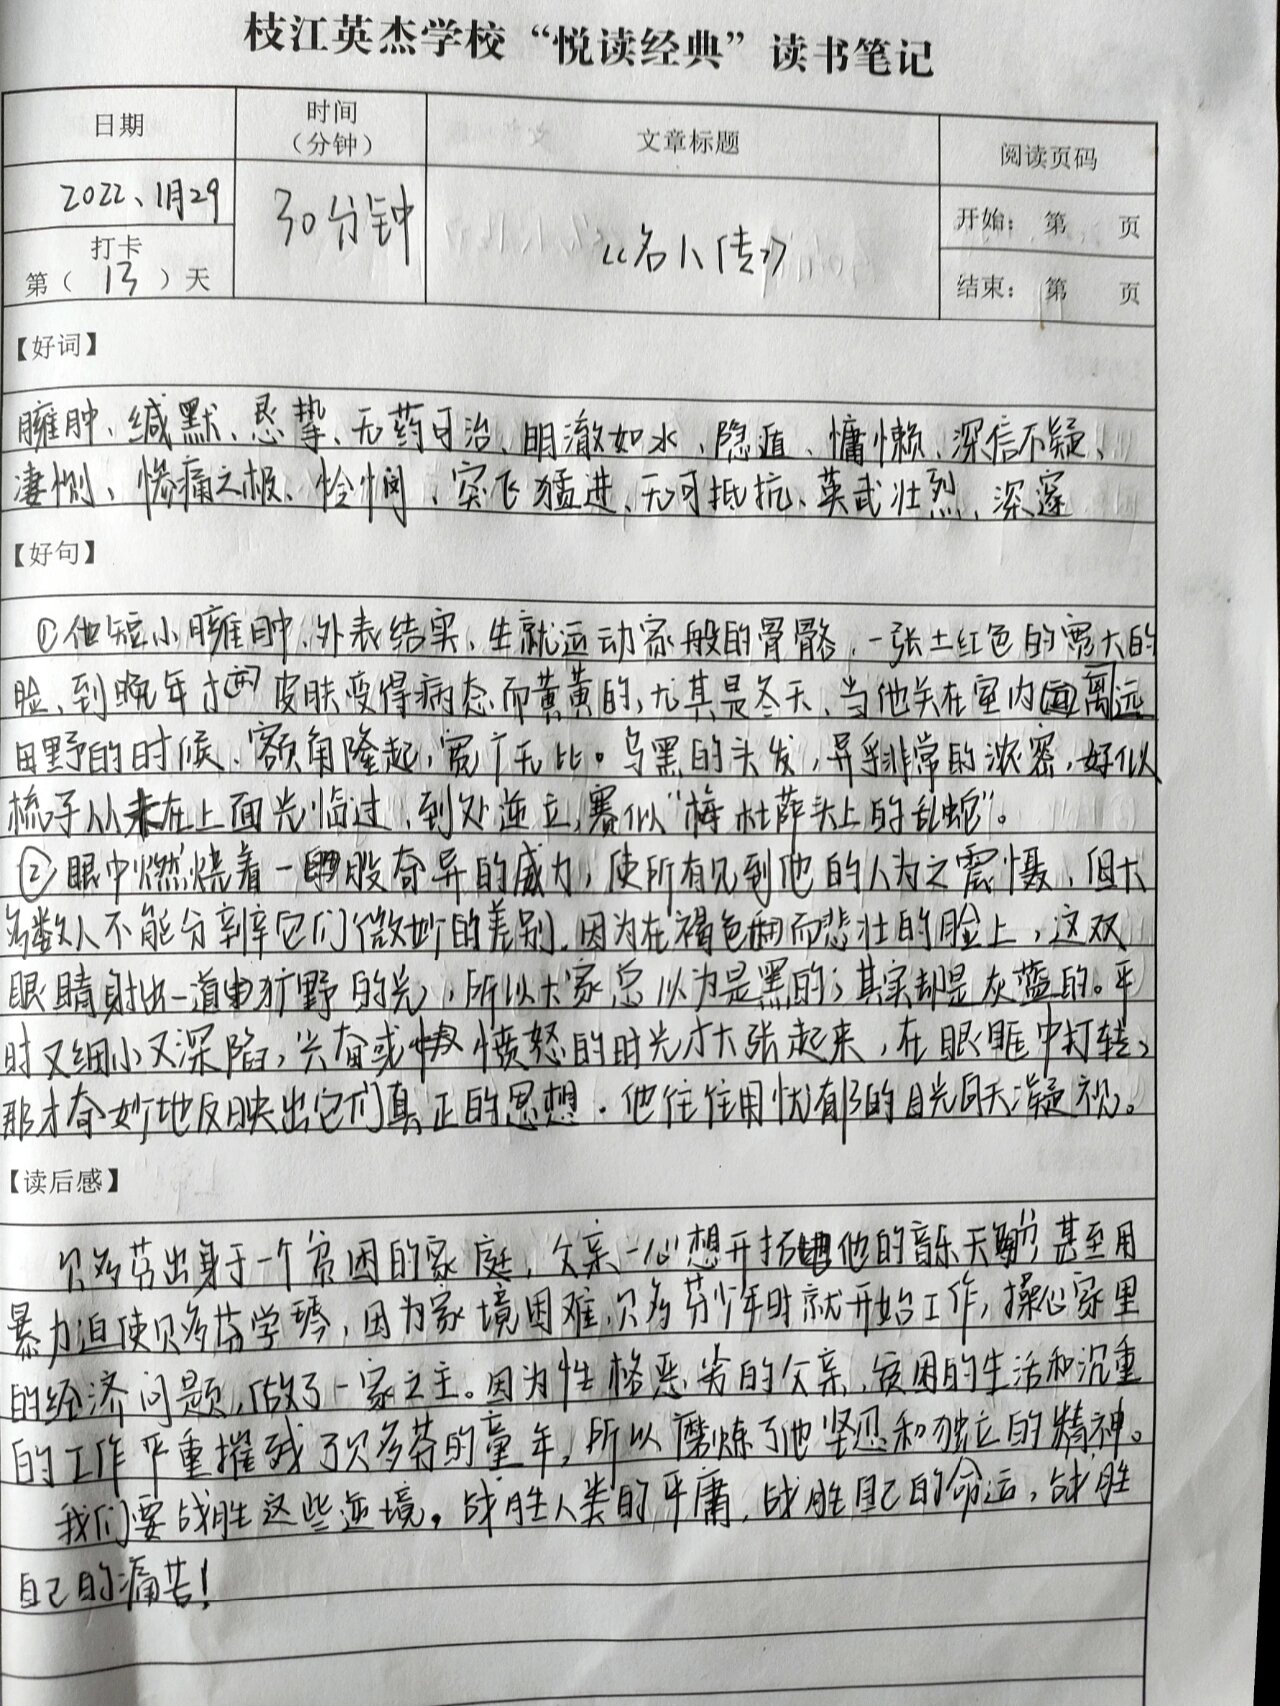 枝江英杰学校“悦读经典”读书笔记
日期 时间（分钟） 文章标题 阅读页码
2022、1月29 30分钟 《名人传》 开始：第 页
打卡第（13）天 结束：第 页
【好词】
臃肿、缄默、恳挚、无药可治、明澈如水、隐遁、慵懒、深信不疑、
凄恻、惨痛之极、怜悯、突飞猛进、无可抵抗、英武壮烈、深邃
【好句】
①他短小臃肿、外表结实、生就运动家般的骨骼，一张土红色的宽大的
脸、到晚年才 皮肤变得病态而黄黄的，尤其是冬天、当他关在室内 离远
田野的时候、额角隆起，宽广无比。乌黑的头发，异乎非常的浓密，好似
梳子从未在上面光临过、到处逆立，赛似“梅杜萨头上的乱蛇”。
②眼中燃烧着一股奇异的威力，使所有见到他的人为之震慑、但大
多数人不能分辨它们微妙的差别。因为在褐色 而悲壮的脸上，这双
眼睛射出一道 犷野的光，所以大家总以为是黑的；其实却是灰蓝的。平
时又细小又深陷，兴奋或 愤怒的时光才大张起来，在眼眶中打转，
那才奇妙地反映出它们真正的思想。他往往用忧郁的目光向天凝视。
【读后感】
贝多芬出身于一个贫困的家庭，父亲一心想开拓 他的音乐天 甚至用
暴力迫使贝多芬学琴，因为家境困难，贝多芬少年时就开始工作，操心家里
的经济问题，做了一家之主。因为性格恶劣的父亲、贫困的生活和沉重
的工作严重摧残了贝多芬的童年，所以磨炼了他坚忍和独立的精神。
我们要战胜这些逆境，战胜人类的平庸，战胜自己的命运，战胜
自己的痛苦！